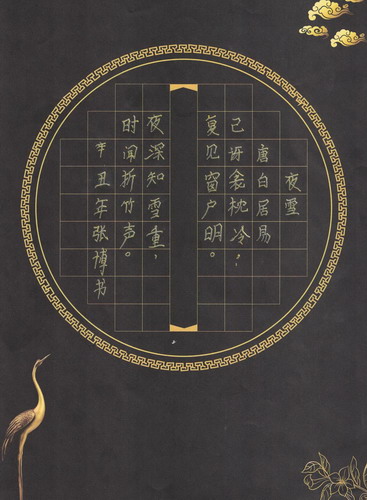 夜雪
唐白居易
已讶衾枕冷，
复见窗户明。
夜深知雪重，
时闻折竹声。
辛丑年张博书